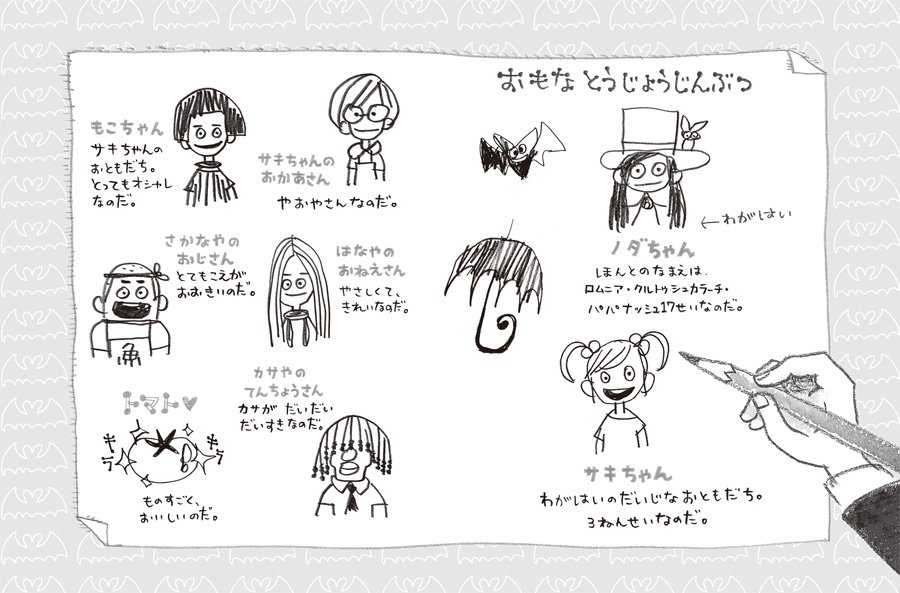 おもな とうじょうじんぶつ
←わがはい
ノダちゃん
ほんとのなまえは、
ロムニア・クルトゥシュカラーチ・
パパナッシュ17せいなのだ。
サキちゃん
わがはいのだいじなおともだち。
3ねんせいなのだ。
サキちゃんの
おかあさん
やおやさんなのだ。
もこちゃん
サキちゃんの
おともだち。
とってもオシャレ
なのだ。
はなやの
おねえさん
やさしくて、
きれいなのだ。
さかなやの
おじさん
とてもこえが
おおきいのだ。
魚
カサやの
てんちょうさん
カサが だいだい
だいすきなのだ。
トマト♥
キラ
キラ
ものすごと、
おいしいのだ。